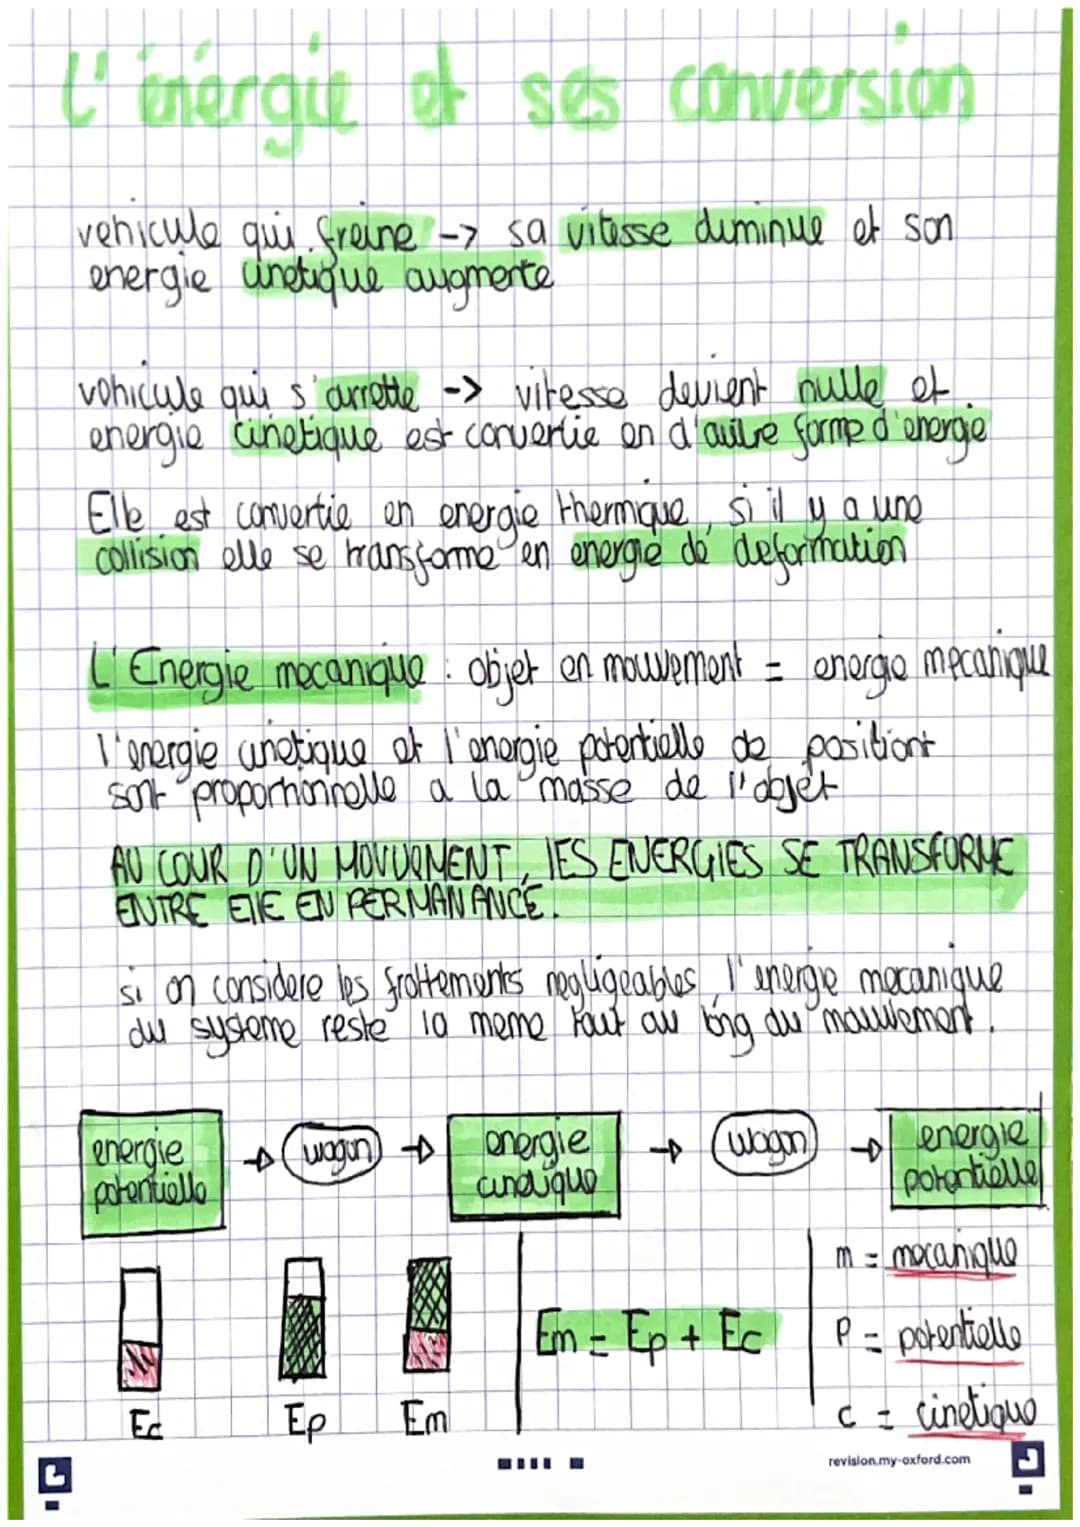 L'énérgie et ses conversion
vehicule qui freine -> sa vitesse diminue et son
energie cinetique augmente
vehicule qui s'arrette -> vitesse devient nulle et
energie cinetique est convertie en d'autre forme d'energie
Elle est convertie en energie thermique, si il y a une
collision elle se transforme en energie de deformation
L'Energie mecanique : objet en mouvement = energie mecanique
l'energie cinetique et l'energie potentielle de positiont
sont proportionnelle a la masse de l'objet
AU COUR D'UN MOUVEMENT, LES ENERGIES SE TRANSFORME
ENTRE ELLE EN PERMANANCE.
si on considere les frottements negligeables, l'energie mecanique
du systeme reste la meme tout au long du mouvement.
energie potentielle -> wagon -> energie cinetique -> wagon -> energie potentielle
Ec Ep Em
Em = Ep + Ec
m = mecanique
P = potentielle
c = cinetique
revision.my-oxford.com